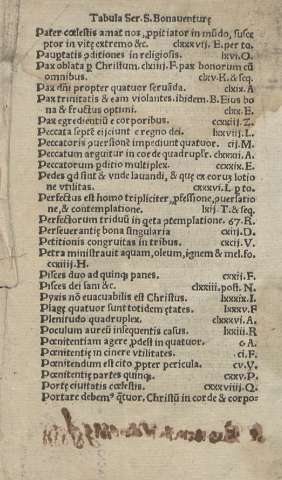 Tabula Ser. S. Bonauenturę
Pater cœlestis amat nos, ꝓpitiator in mũdo, susce
ptor in vitę extremo &c. clxxvij. E. per to.
Paupertatis ꝯditiones in religiosis. lxvi. O.
Pax oblata ꝑ Christum. clxiiij. F. pax bonorum cũ
omnibus. clxv. K. & seq.
Pax dñi propter quatuor seruãda. clxix. A
Pax trinitatis & eam violantes. ibidem. B. Eius bo
na & fructus optimi. clxx. E.
Pax egredientiũ e corporibus. ccxxiij. Z.
Peccata septẽ eijciunt e regno dei. lxxvij. L.
Peccatoris ꝓuersionẽ impediunt quatuor. cij. M.
Peccatum arguitur in corde quadruplr̃. clxxxi. A.
Peccatorum ꝯditio multiplex. ccxxix. E.
Pedes qđ sint & vnde lauandi, & quę ex eorum lotio
ne vtilitas. cxxxvi. L p to.
Perfectus est homo tripliciter, ꝓfessione, ꝓuersatio
ne, & contemplatione. lxij. T. & seq.
Perfectorum triduũ in geta ꝯtemplatione. 67. R.
Perseuerantię bona singularia ciiij. D.
Petitionis congruitas in tribus. cxcij. V.
Petra ministrauit aquam, oleum, ignem & mel. fo.
cciiij. H.
Pisces duo ad quinqꝫ panes. cxxij. F.
Pisces dei sani &c. clxxiiij. post. N.
Pyxis nõ euacuabilis est Christus. lxxxix. I.
Plagę quatuor sunt totidem ętates. lxxxv. F
Plenitudo quadruplex. clxxvi. A.
Poculum aureũ insequentis casus. lxxiij. R
Pœnitentiam agere ꝓdest in quatuor. 6 A.
Pœnitentię in cinere vtilitates. ci. F.
Pœnitendum est cito ꝓpter pericula. cv. V.
Pœnitentię partes quinqꝫ. cxxv. P.
Portę ciuitatis cœlestis. cxxxviiij. Q.
Portare debemꝰ q̃tuor. Christũ in corde & corpo-